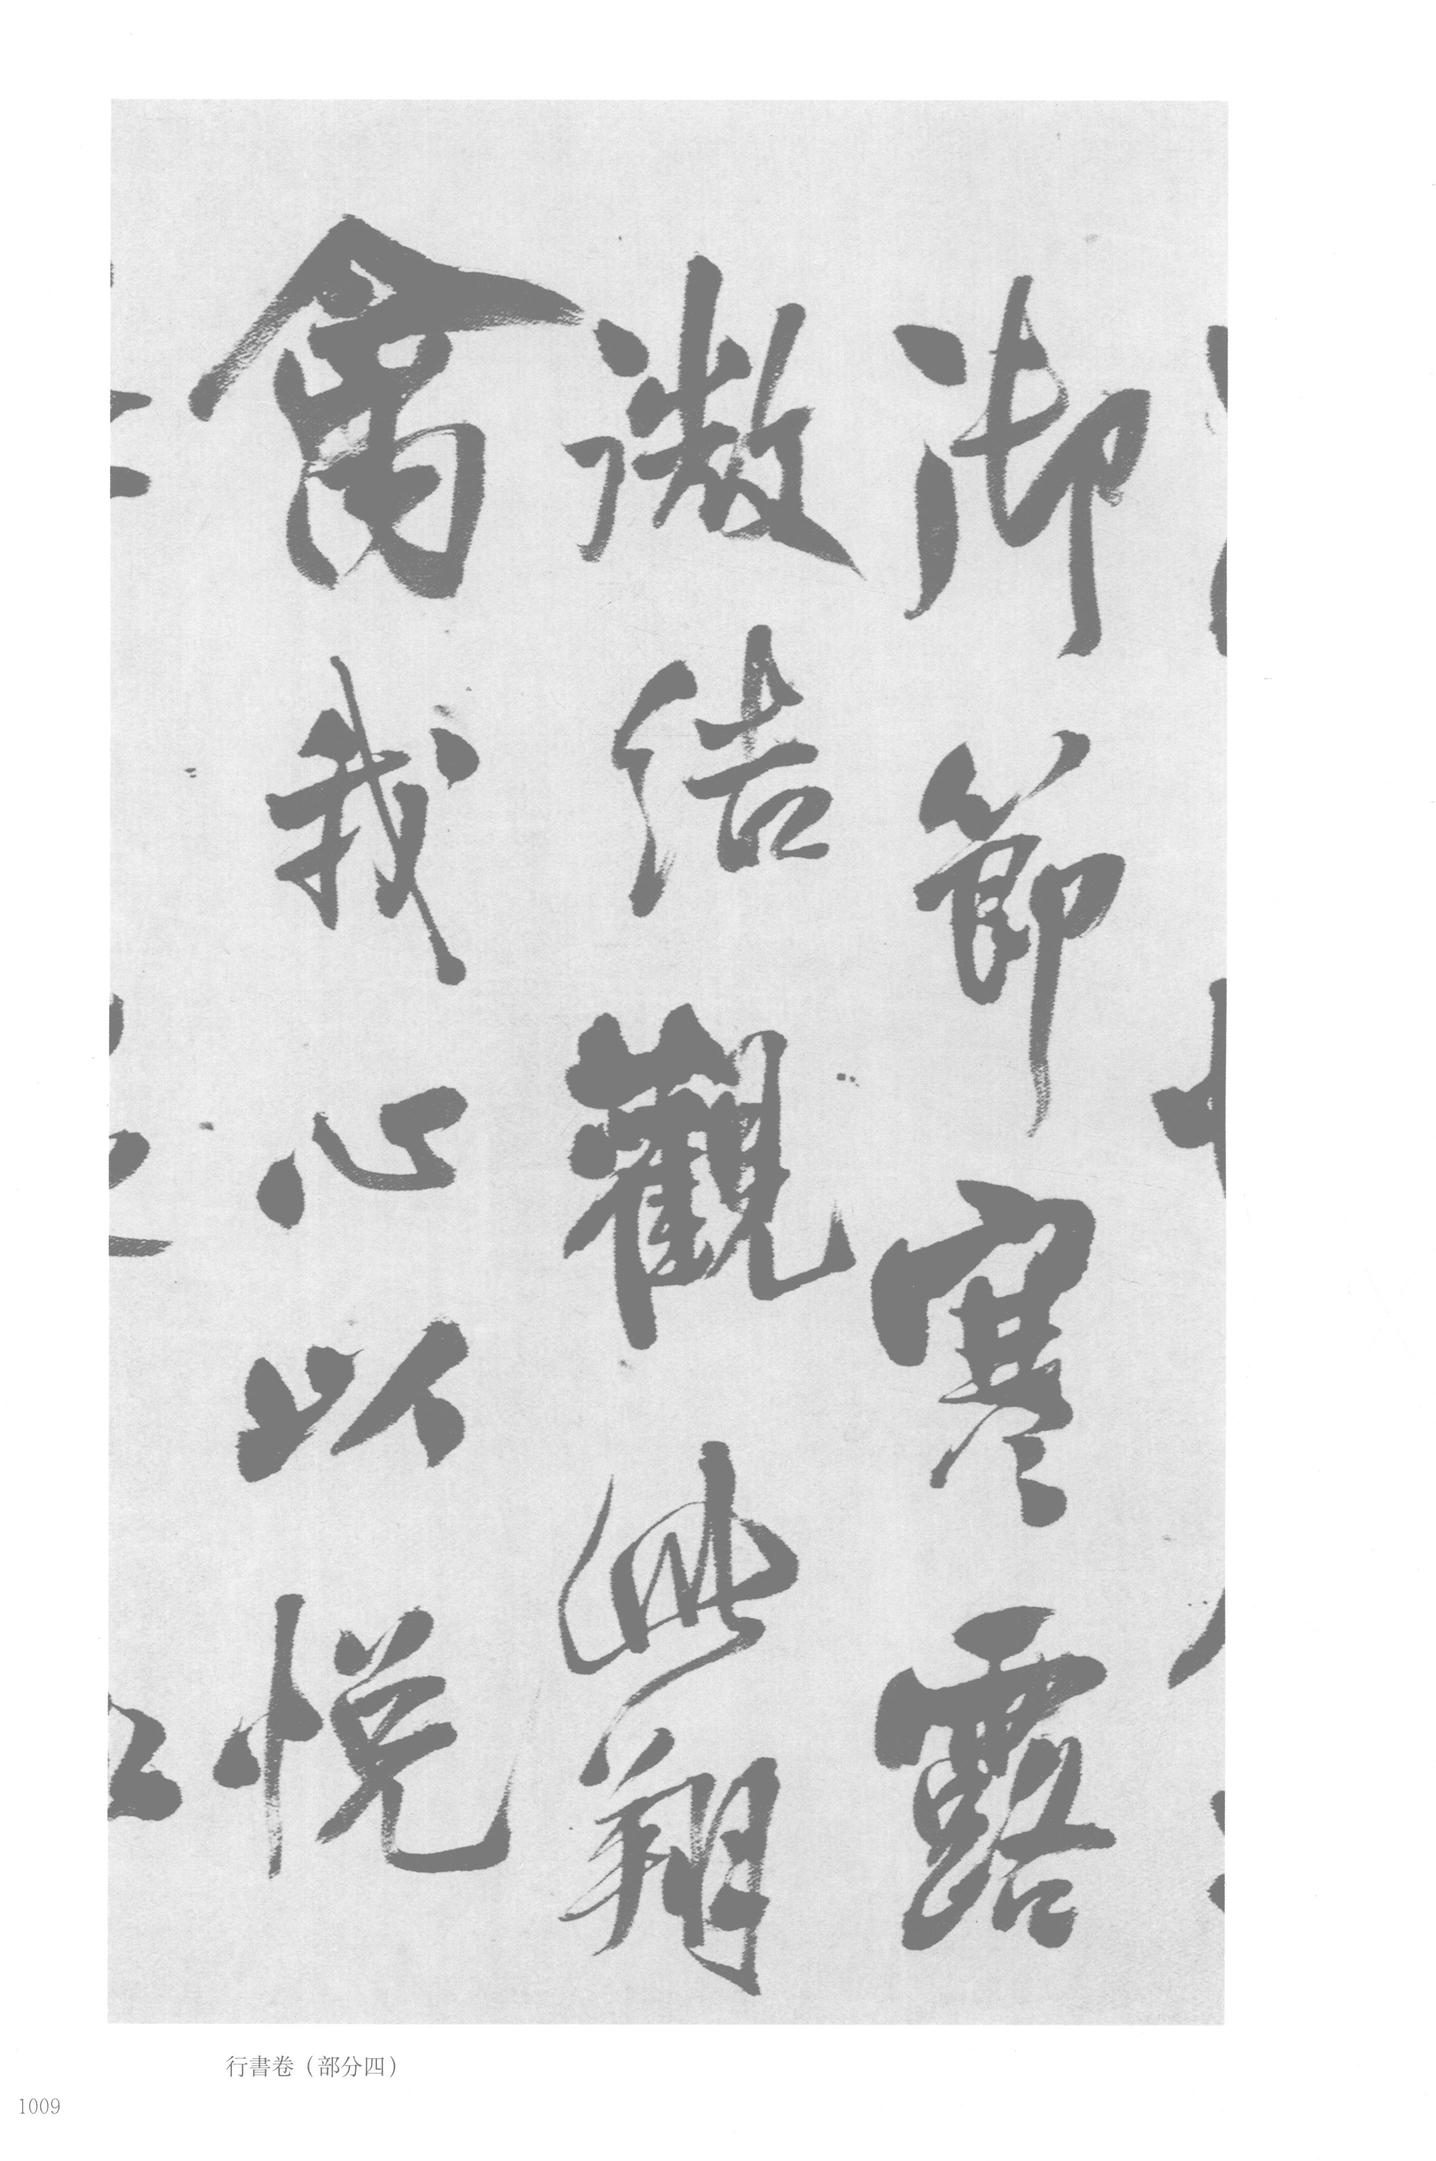 御節寒露
微結觀此翔
禽我心以悅
行書卷（部分四）
1009